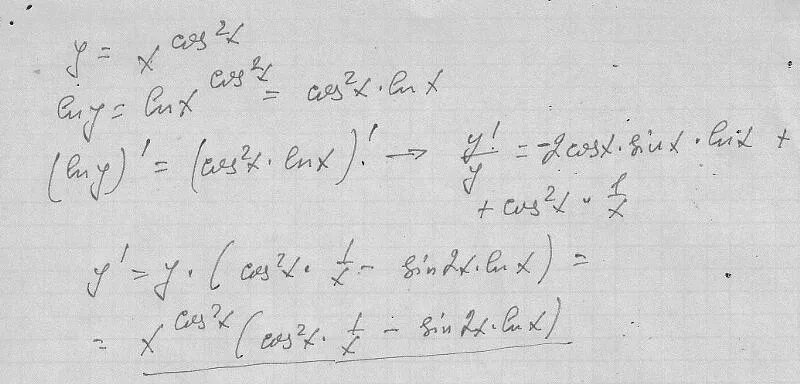 y = x^cos²x
ln y = ln x^cos²x = cos²x · ln x
(ln y)' = (cos²x · ln x)' → y'/y = -2cosx · sinx · lnx +
+ cos²x · 1/x
y' = y · (cos²x · 1/x - sin2x · lnx) =
= x^cos²x (cos²x · 1/x - sin2x · lnx)